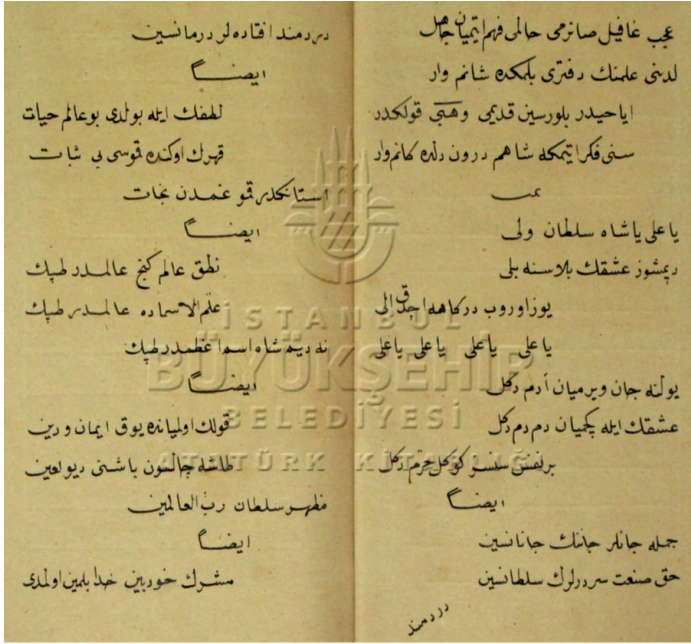 عجب غافل صانرمی حالمی فهم ایتمیان جاهل
لدنی علمنك دفتری بلمكده شانم وار
ایا حیدر بلورسین قدیمی وهبی قولكدر
سنی فكر ایتمكه شاهم درون دلده كانم وار
یا علی یا شاه سلطان ولی
دیمشوز عشقك بلاسنه بلی
یوز اوروب دركاهه اجدق الی
یا علی یا علی یا علی یا علی
یولنه جان ویرمیان آدم دكل
عشقك ایله چكمیان دم دم دكل
بر نفس سنسز كوكل خرم دكل
ایضاً
جمله جانلر جاننك جانانسین
حق صنعت سردرلرك سلطانسین
دردمند
دردمند افتاده لر درمانسین
ایضاً
لطفك ایله بولدی بو عالم حیات
قهرك اوكنده قموسی بی ثبات
استانكدر قمو غمدن نجات
ایضاً
نطق عالم كنج عالمدر طپك
علم الاسماده عالمدر طپك
نه دیم شاه اسم اعظمدر طپك
ایضاً
قولك اولمیانده یوق ایمان و دین
طاشه چالسون باشنی دیو لعین
مظهر سلطان رب العالمین
ایضاً
مشرك خودبین خدا بلمین اولمدی
İSTANBUL
BÜYÜKŞEHİR
BELEDİYESİ
ATATÜRK KİTAPLIĞI